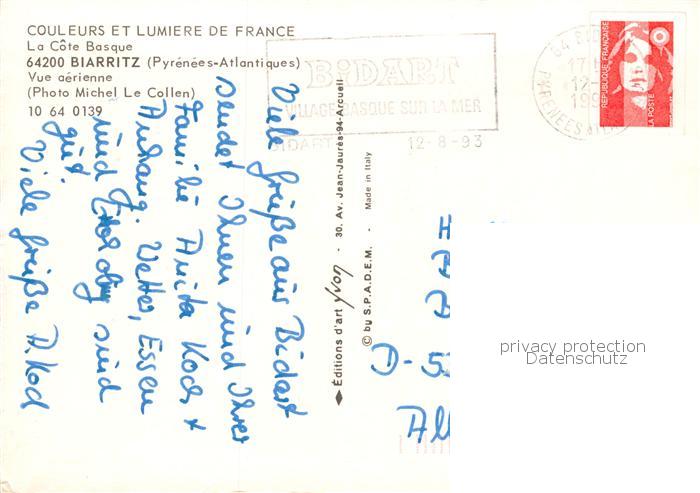 COULEURS ET LUMIERE DE FRANCE
La Côte Basque
64200 BIARRITZ (Pyrénées-Atlantiques)
Vue aérienne
(Photo Michel Le Collen)
10 64 0139
BiDART
VILLAGE BASQUE SUR LA MER
BIDART 12-8-93
64 BIDART
17
12-
199
PYRENEES ATL
REPUBLIQUE FRANÇAISE
LA POSTE
Viele Grüße aus Bidart
sendet Ihnen und Ihrer
Familie Anita Koch +
Anhang. Wetter, Essen
und Erholung sind
gut.
Viele Grüße A. Koch
Éditions d'art yvon - 30, Av. Jean-Jaurès-94-Arcueil
© by S.P.A.D.E.M. - Made in Italy
D-5
All
privacy protection
Datenschutz